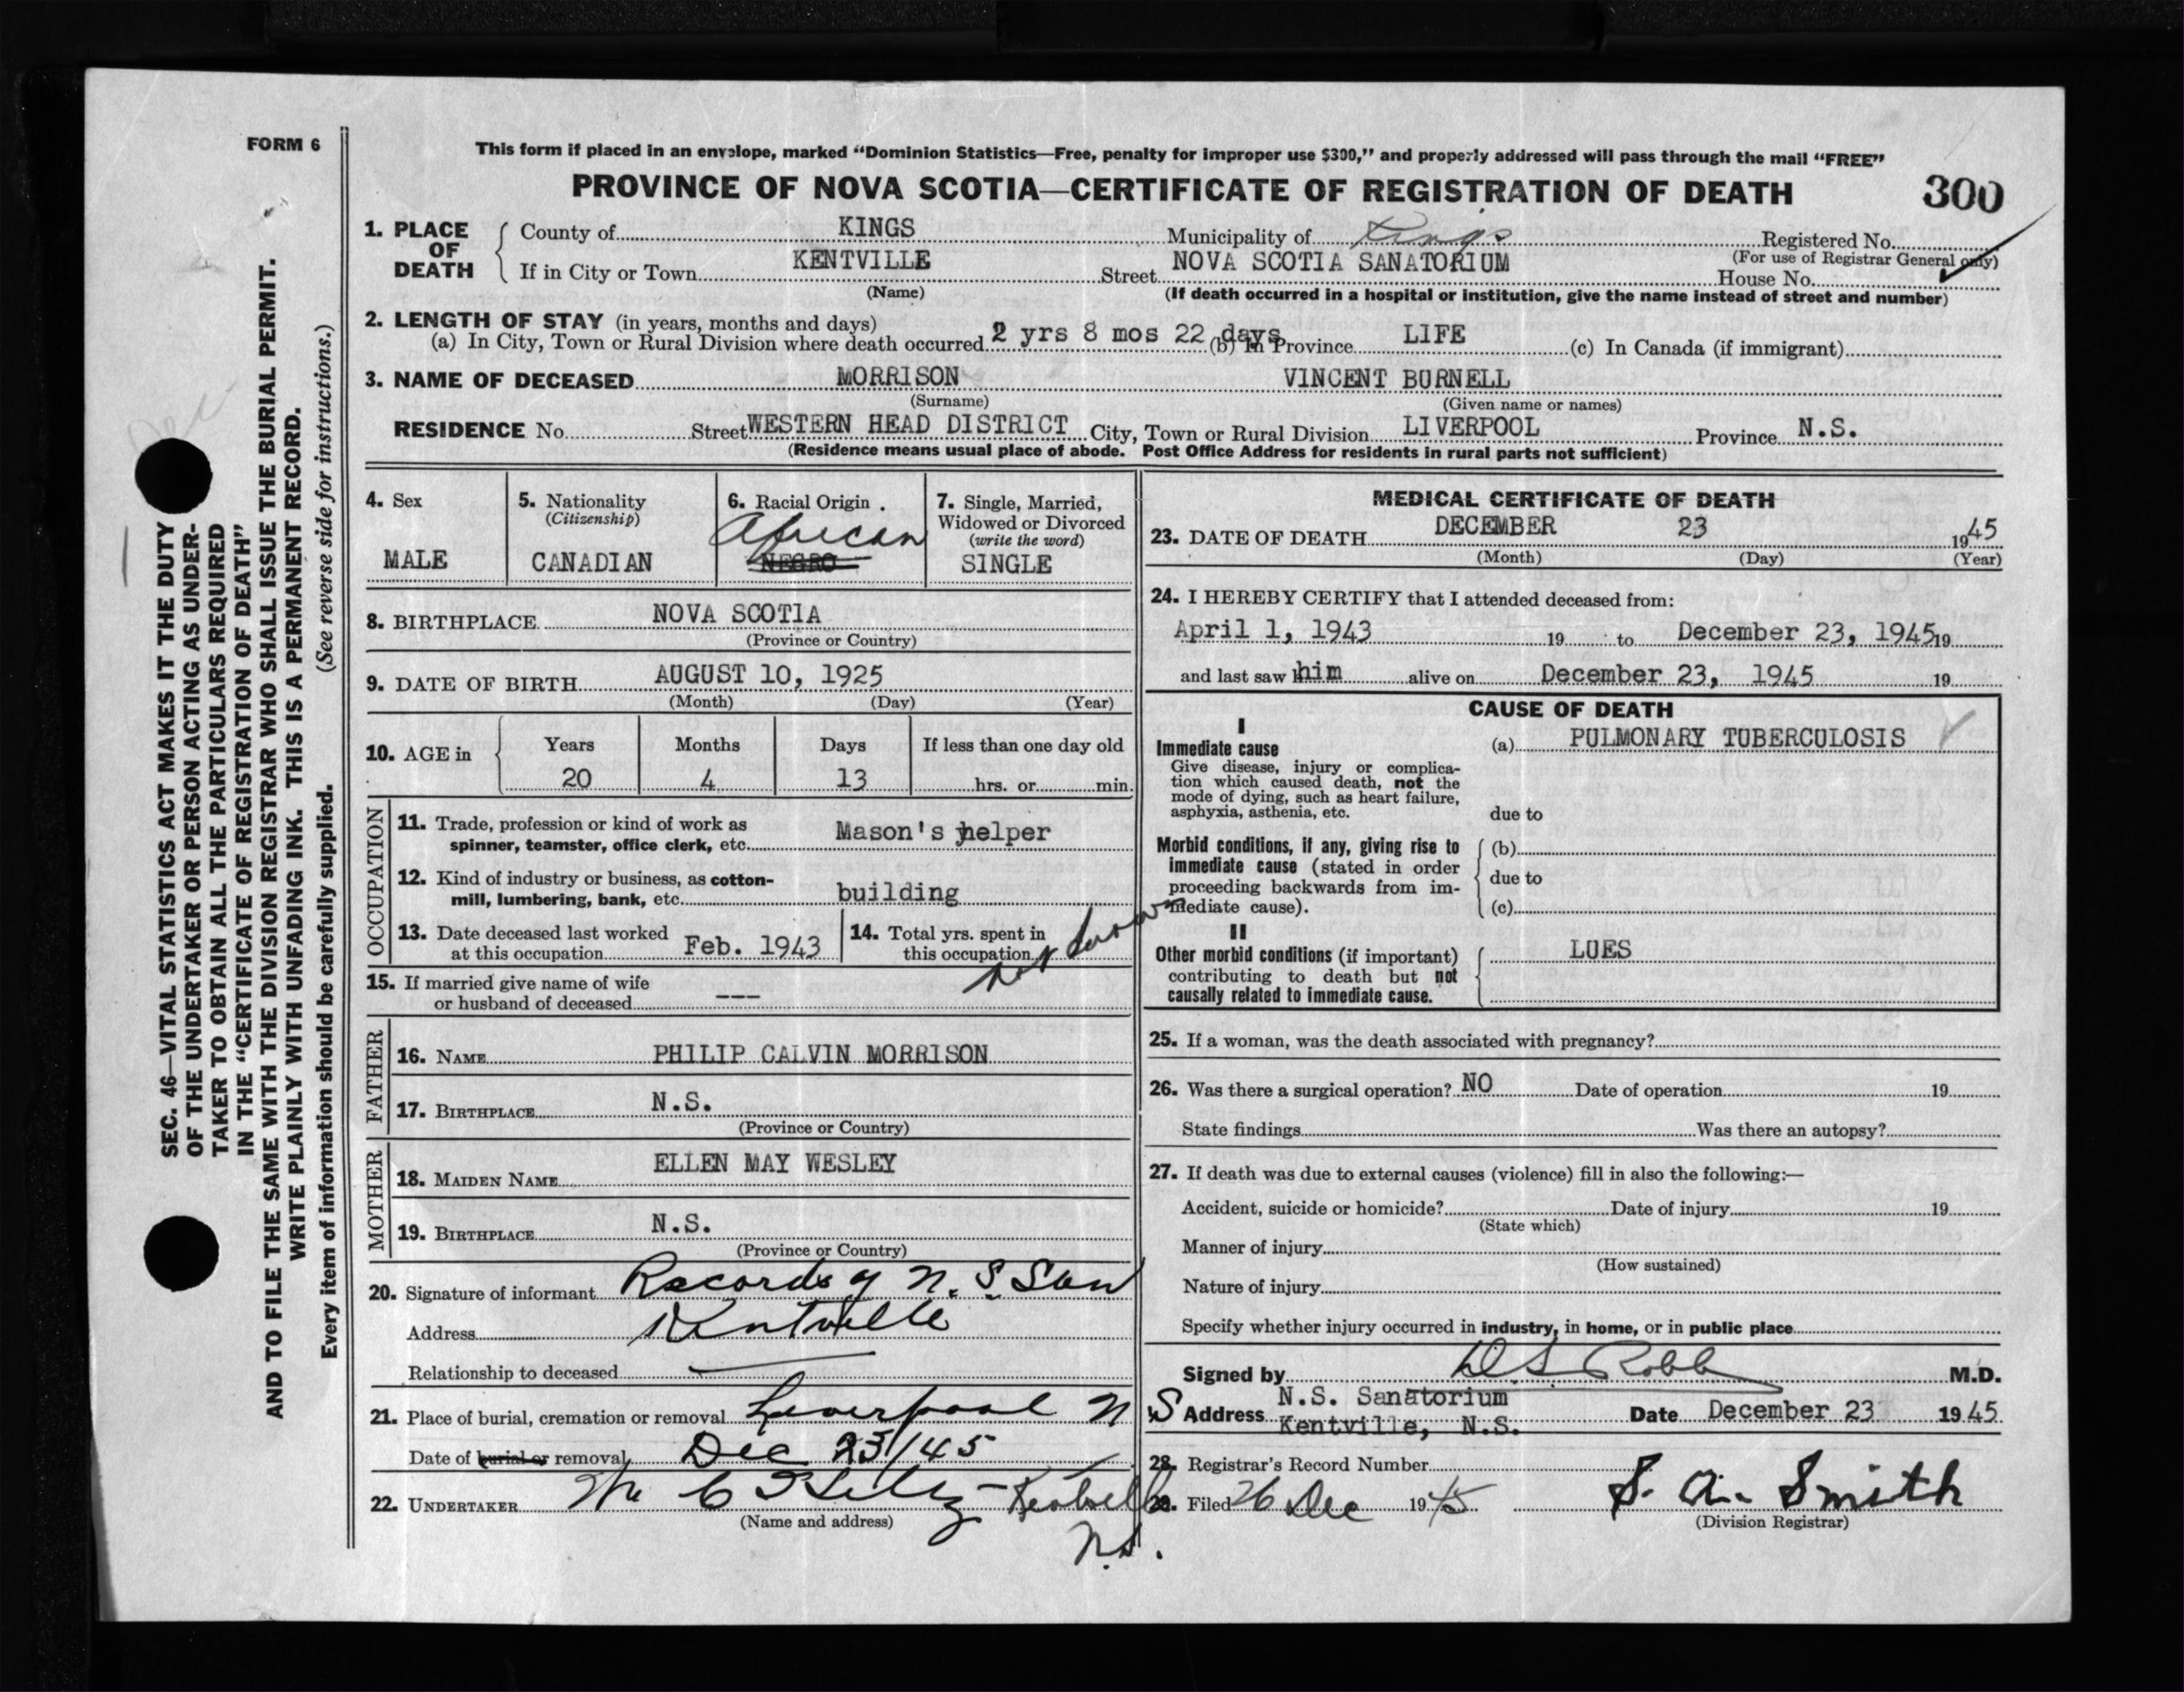 FORM 6
This form if placed in an envelope, marked "Dominion Statistics—Free, penalty for improper use $300," and properly addressed will pass through the mail "FREE"
PROVINCE OF NOVA SCOTIA—CERTIFICATE OF REGISTRATION OF DEATH 300
1. PLACE OF DEATH County of KINGS Municipality of Kings Registered No.
(For use of Registrar General only)
If in City or Town KENTVILLE Street NOVA SCOTIA SANATORIUM House No.
(Name) (If death occurred in a hospital or institution, give the name instead of street and number)
2. LENGTH OF STAY (in years, months and days)
(a) In City, Town or Rural Division where death occurred 2 yrs 8 mos 22 days (b) In Province LIFE (c) In Canada (if immigrant)
3. NAME OF DECEASED MORRISON VINCENT BURNELL
(Surname) (Given name or names)
RESIDENCE No. Street WESTERN HEAD DISTRICT City, Town or Rural Division LIVERPOOL Province N.S.
(Residence means usual place of abode. Post Office Address for residents in rural parts not sufficient)
4. Sex
MALE
5. Nationality
(Citizenship)
CANADIAN
6. Racial Origin
African
NEGRO
7. Single, Married,
Widowed or Divorced
(write the word)
SINGLE
8. BIRTHPLACE NOVA SCOTIA
(Province or Country)
9. DATE OF BIRTH AUGUST 10, 1925
(Month) (Day) (Year)
10. AGE in Years Months Days If less than one day old
20 4 13 hrs. or min.
OCCUPATION
11. Trade, profession or kind of work as
spinner, teamster, office clerk, etc. Mason's helper
12. Kind of industry or business, as cotton-
mill, lumbering, bank, etc. building
13. Date deceased last worked
at this occupation Feb. 1943
14. Total yrs. spent in
this occupation not known
15. If married give name of wife
or husband of deceased ---
FATHER
16. NAME PHILIP CALVIN MORRISON
17. BIRTHPLACE N.S.
(Province or Country)
MOTHER
18. MAIDEN NAME ELLEN MAY WESLEY
19. BIRTHPLACE N.S.
(Province or Country)
20. Signature of informant Records of N. S. San
Address Kentville
Relationship to deceased
21. Place of burial, cremation or removal Liverpool N S
Date of burial or removal Dec 25/45
22. UNDERTAKER Kentville
(Name and address)
N.S.
MEDICAL CERTIFICATE OF DEATH
23. DATE OF DEATH DECEMBER 23 1945
(Month) (Day) (Year)
24. I HEREBY CERTIFY that I attended deceased from:
April 1, 1943 19 to December 23, 1945 19
and last saw him alive on December 23, 1945 19
CAUSE OF DEATH
I
Immediate cause (a) PULMONARY TUBERCULOSIS
Give disease, injury or complica-
tion which caused death, not the
mode of dying, such as heart failure,
asphyxia, asthenia, etc. due to
Morbid conditions, if any, giving rise to (b)
immediate cause (stated in order
proceeding backwards from im- due to
mediate cause). (c)
II
Other morbid conditions (if important) LUES
contributing to death but not
causally related to immediate cause.
25. If a woman, was the death associated with pregnancy?
26. Was there a surgical operation? NO Date of operation 19
State findings Was there an autopsy?
27. If death was due to external causes (violence) fill in also the following:—
Accident, suicide or homicide? Date of injury 19
(State which)
Manner of injury
(How sustained)
Nature of injury
Specify whether injury occurred in industry, in home, or in public place
Signed by D.S. Robb M.D.
Address N.S. Sanatorium
Kentville, N.S. Date December 23 1945
28. Registrar's Record Number
29. Filed 26 Dec 1945 S. A. Smith
(Division Registrar)
Dec
SEC. 46—VITAL STATISTICS ACT MAKES IT THE DUTY
OF THE UNDERTAKER OR PERSON ACTING AS UNDER-
TAKER TO OBTAIN ALL THE PARTICULARS REQUIRED
IN THE "CERTIFICATE OF REGISTRATION OF DEATH"
AND TO FILE THE SAME WITH THE DIVISION REGISTRAR WHO SHALL ISSUE THE BURIAL PERMIT.
WRITE PLAINLY WITH UNFADING INK. THIS IS A PERMANENT RECORD.
Every item of information should be carefully supplied. (See reverse side for instructions.)